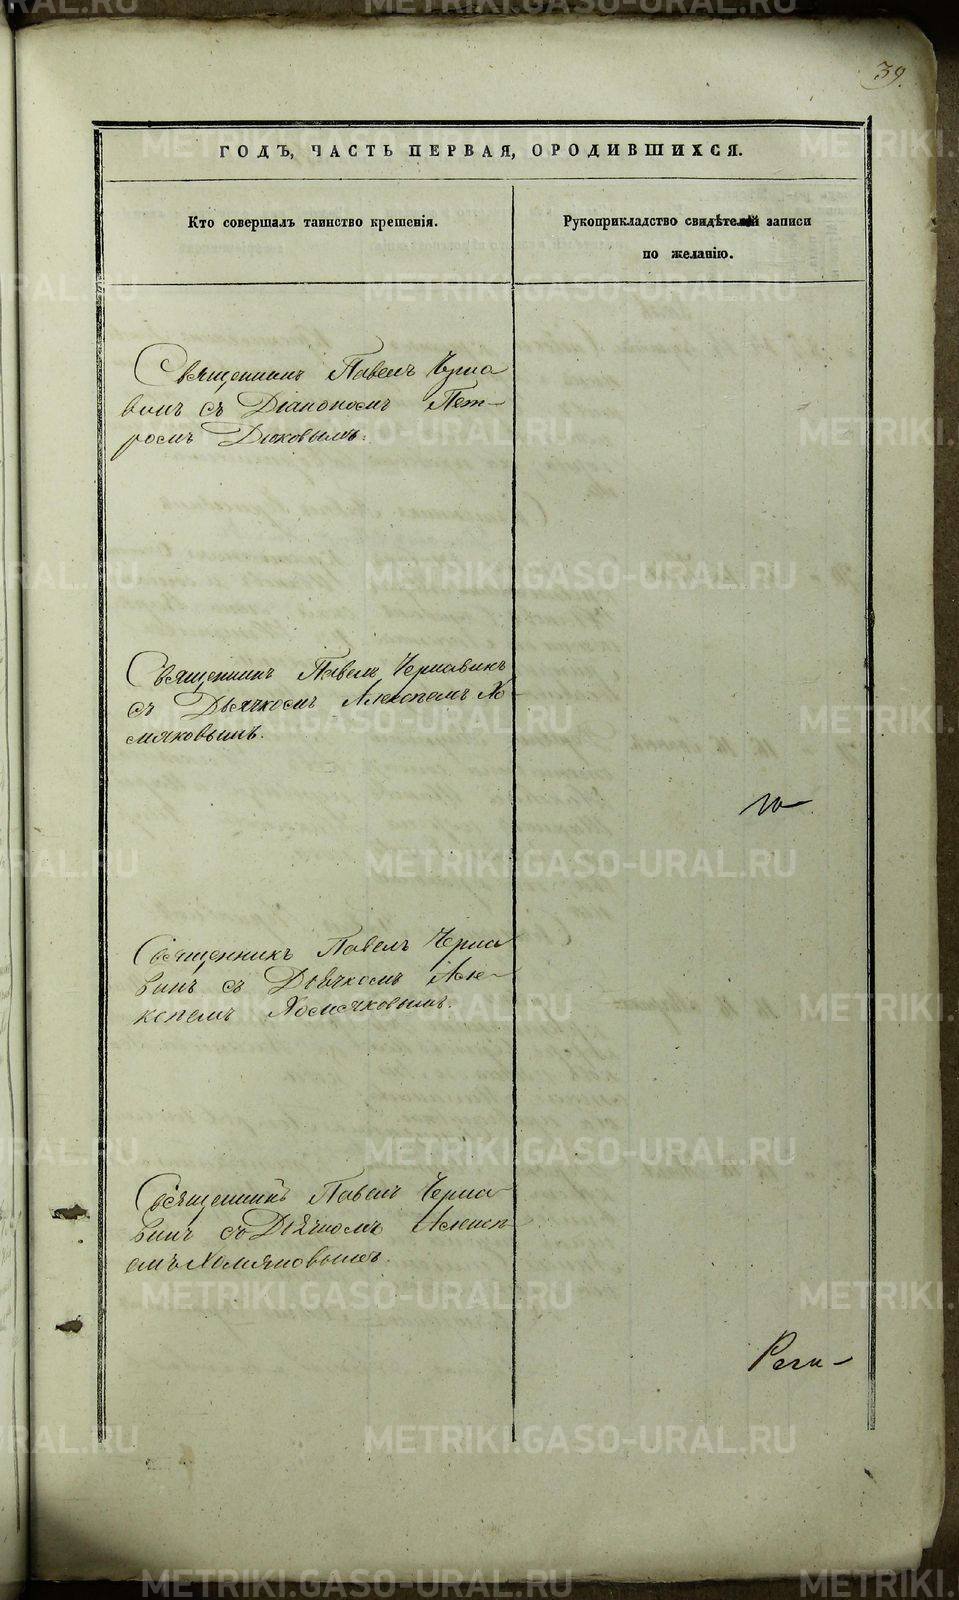 39.
ГОДЪ, ЧАСТЬ ПЕРВАЯ, ОРОДИВШИХСЯ.
Кто совершалъ таинство крещенія.
Рукоприкладство свидѣтелей записи
по желанію.
Священникъ Павелъ Черна
винъ съ Діакономъ Пет-
ромъ Диковымъ.
Священникъ Павелъ Чернавинъ
съ Дьячкомъ Алексѣемъ Хо
мяковымъ.
го
Священникъ Павелъ Черна
винъ съ Дьячкомъ Але-
ксѣемъ Хомячковымъ.
Священникъ Павелъ Черна
винъ съ Дьячкомъ Алексѣ
емъ Хомяковымъ.
METRIKI.GASO-URAL.RU